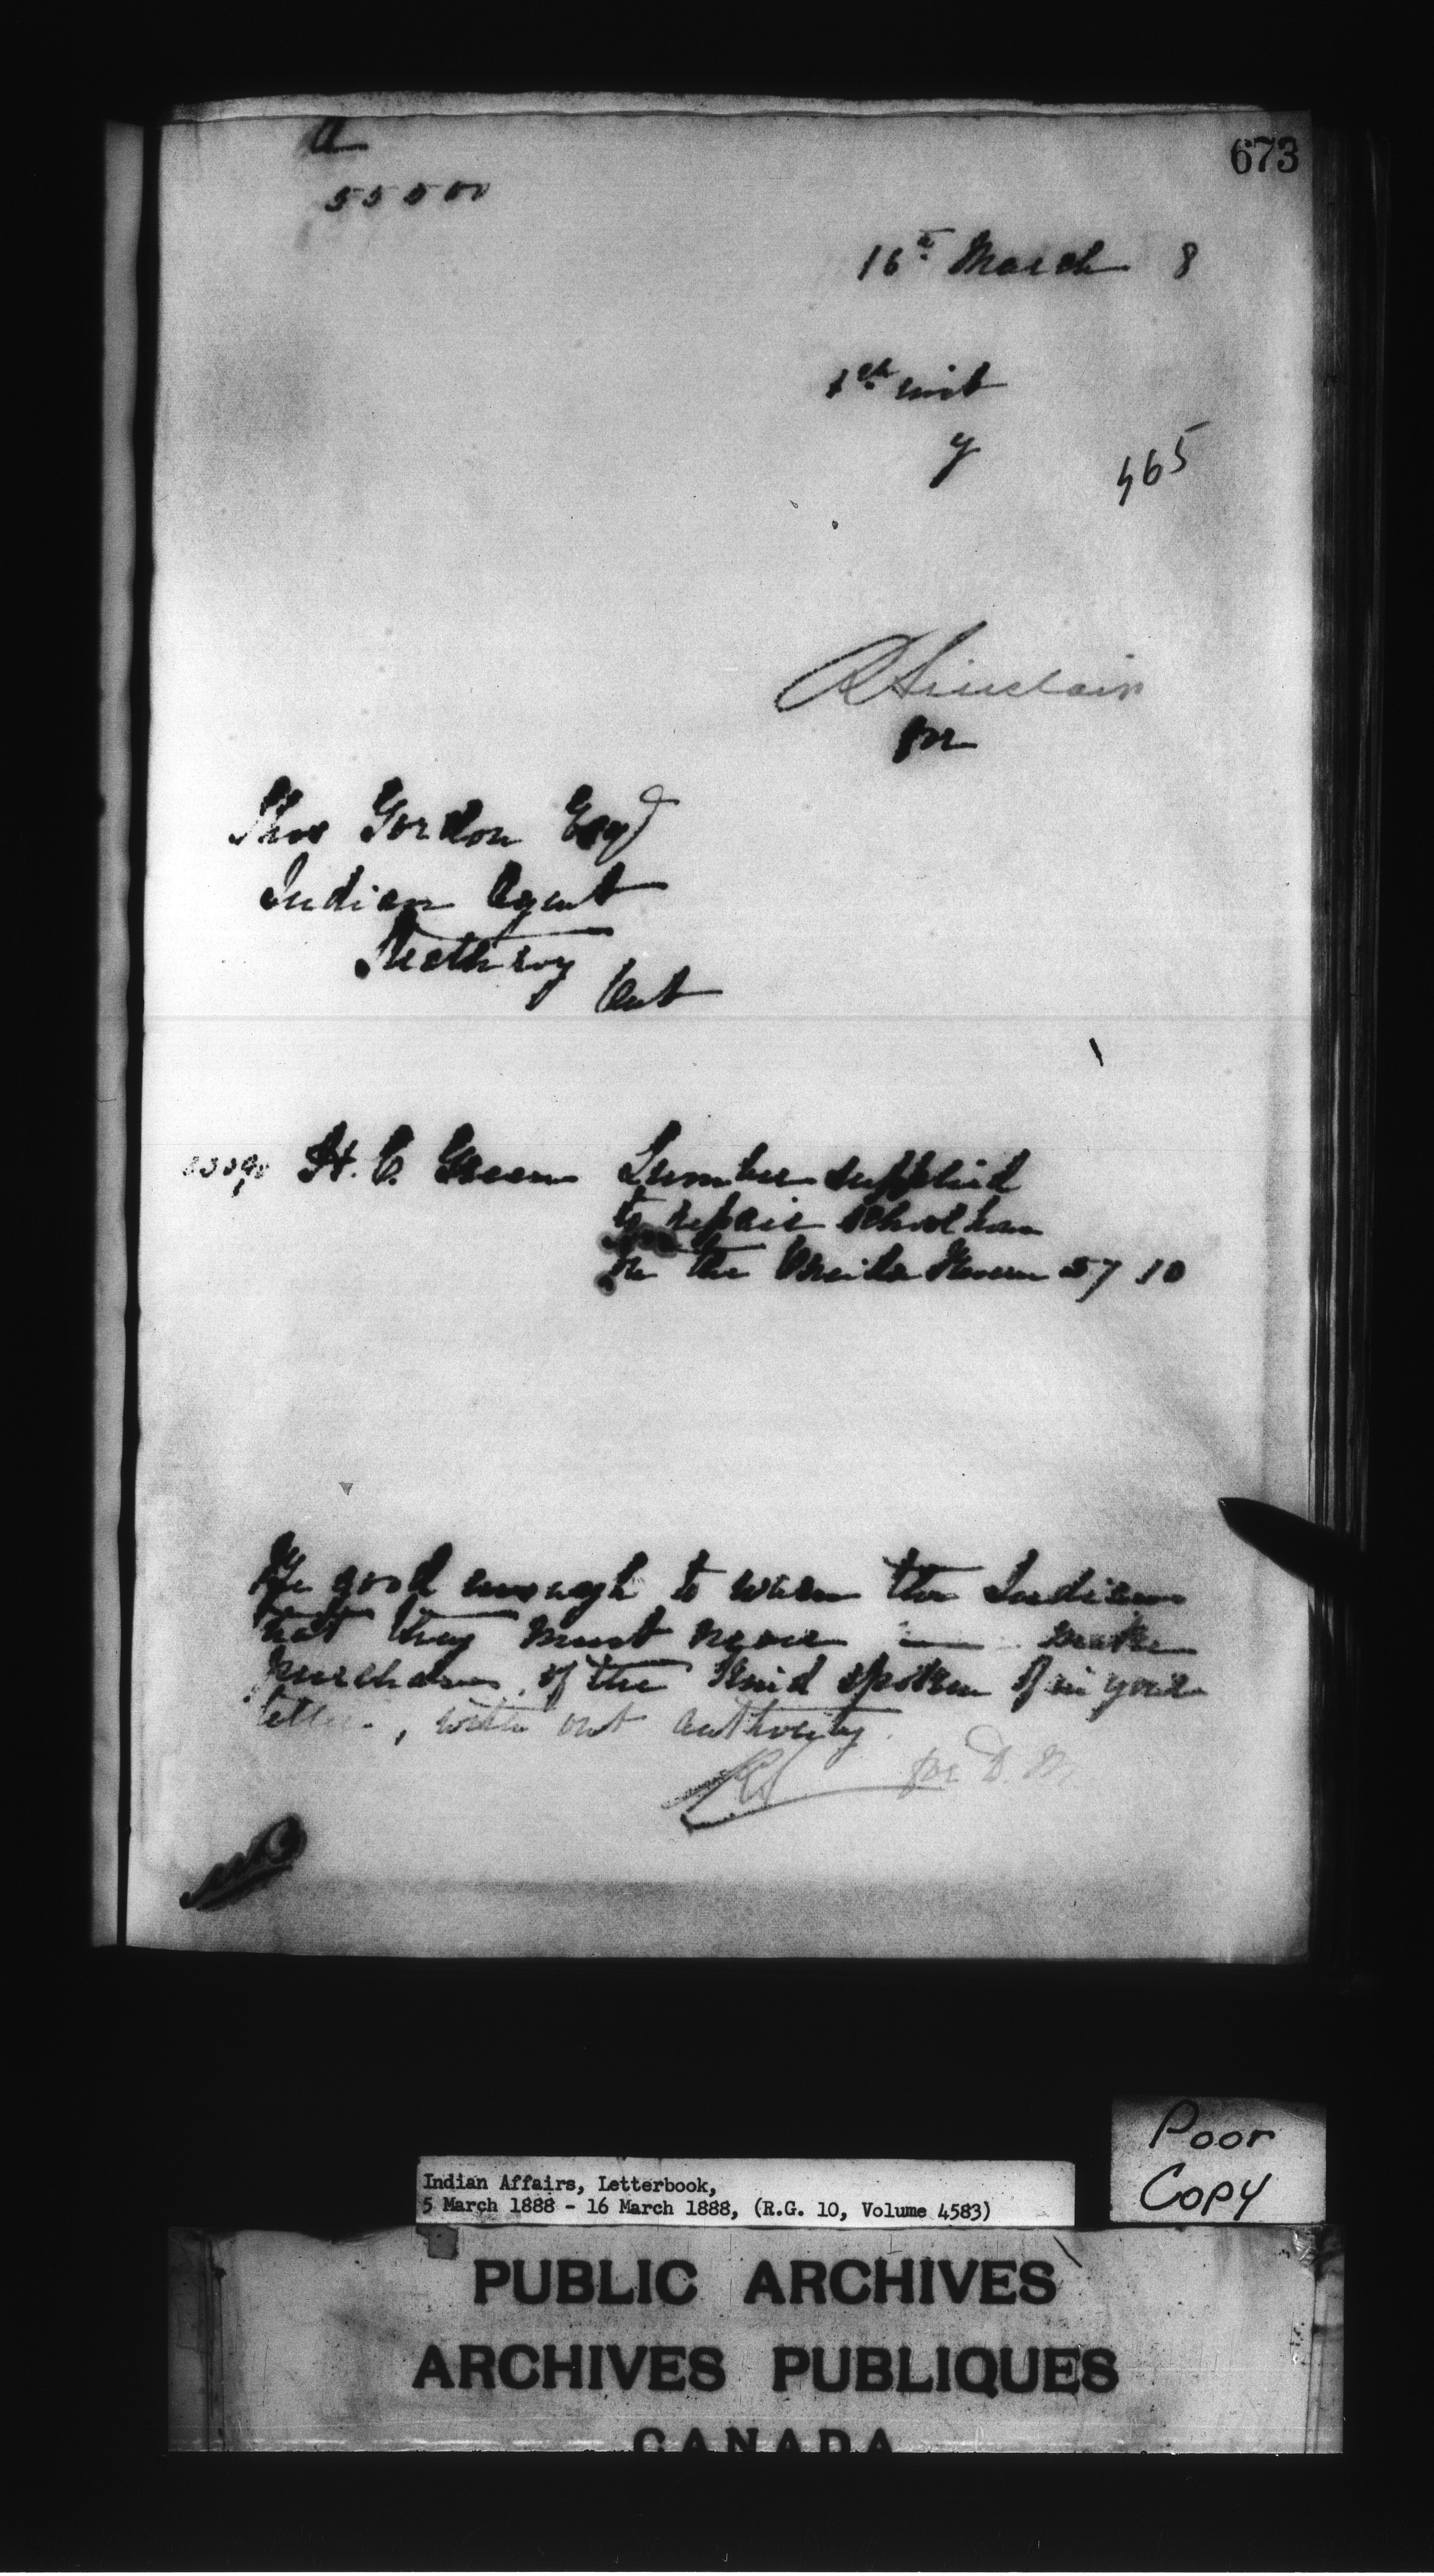 673
A
55500
16th March 8
1st inst
y
465
R Sinclair
for
Thos Gordon Esqr
Indian Agent
Strathroy
Ont
H. C. Green Lumber supplied
to repair School house
on the Oneida Reserve 57 10
Be good enough to warn the Indians
that they must never make
purchases of the kind spoken of in your
letter, with out authority.
RS for D. M.
Poor
Copy
Indian Affairs, Letterbook,
5 March 1888 - 16 March 1888, (R.G. 10, Volume 4583)
PUBLIC ARCHIVES
ARCHIVES PUBLIQUES
CANADA